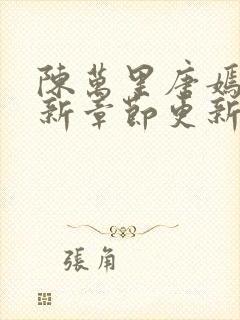 陳萬里唐嫣
新章節更新
張角